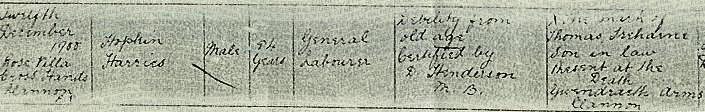 Twelfth
December
1908
Rose Villa
Cross Hands
Llannon
Hopkin
Harries
Male
84
Years
General
Labourer
Debility from
old age
Certified by
Henderson
M. B.
X The mark of
Thomas Treharne
Son in law
Present at the
Death
Gwendraeth Arms
Llannon